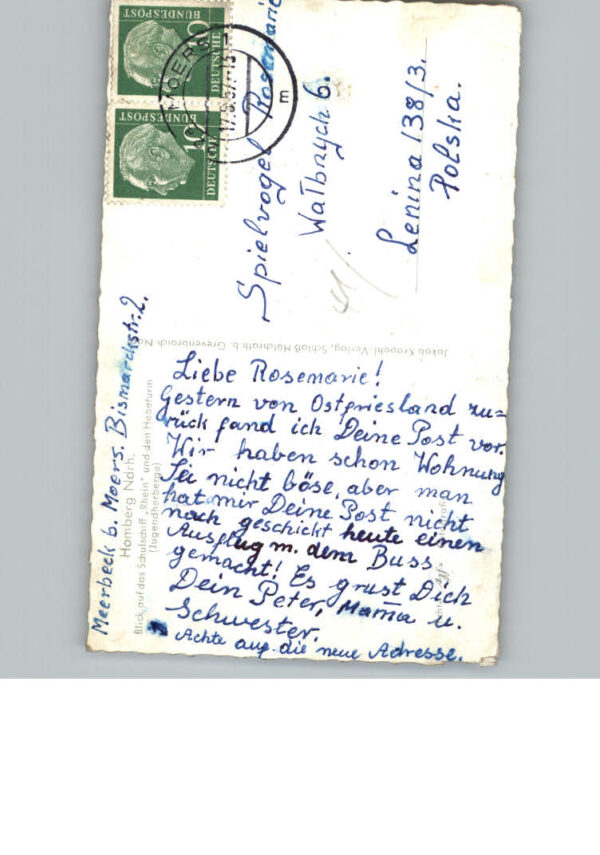 DEUTSCHE
BUNDESPOST
10
DEUTSCHE
BUNDESPOST
MOERS
Spielvogel Rosemarie
Wałbrzych 6.
Lenina 138/3.
Polska.
Jakob Krapohl-Verlag, Schloß
b. Grevenbroich Ndrh.
Meerbeck b. Moers. Bismarckstr. 2.
Homberg Ndrh.
Blick auf das Schulschiff „Rhein“ und den Hebeturm
(Jugendherberge)
Liebe Rosemarie!
Gestern von Ostfriesland zu=
rück fand ich Deine Post vor.
Wir haben schon Wohnung
Sei nicht böse, aber man
hat mir Deine Post nicht
nach geschickt heute einen
Ausflug m. dem Buss
gemacht! Es grust Dich
Dein Peter, Mama u.
Schwester.
Achte auf die neue Adresse.